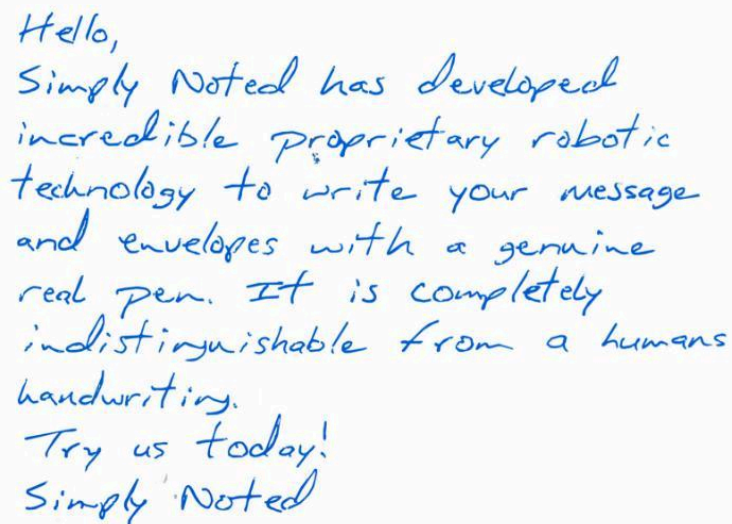 Hello,
Simply Noted has developed
incredible proprietary robotic
technology to write your message
and envelopes with a genuine
real pen. It is completely
indistinguishable from a humans
handwriting.
Try us today!
Simply Noted